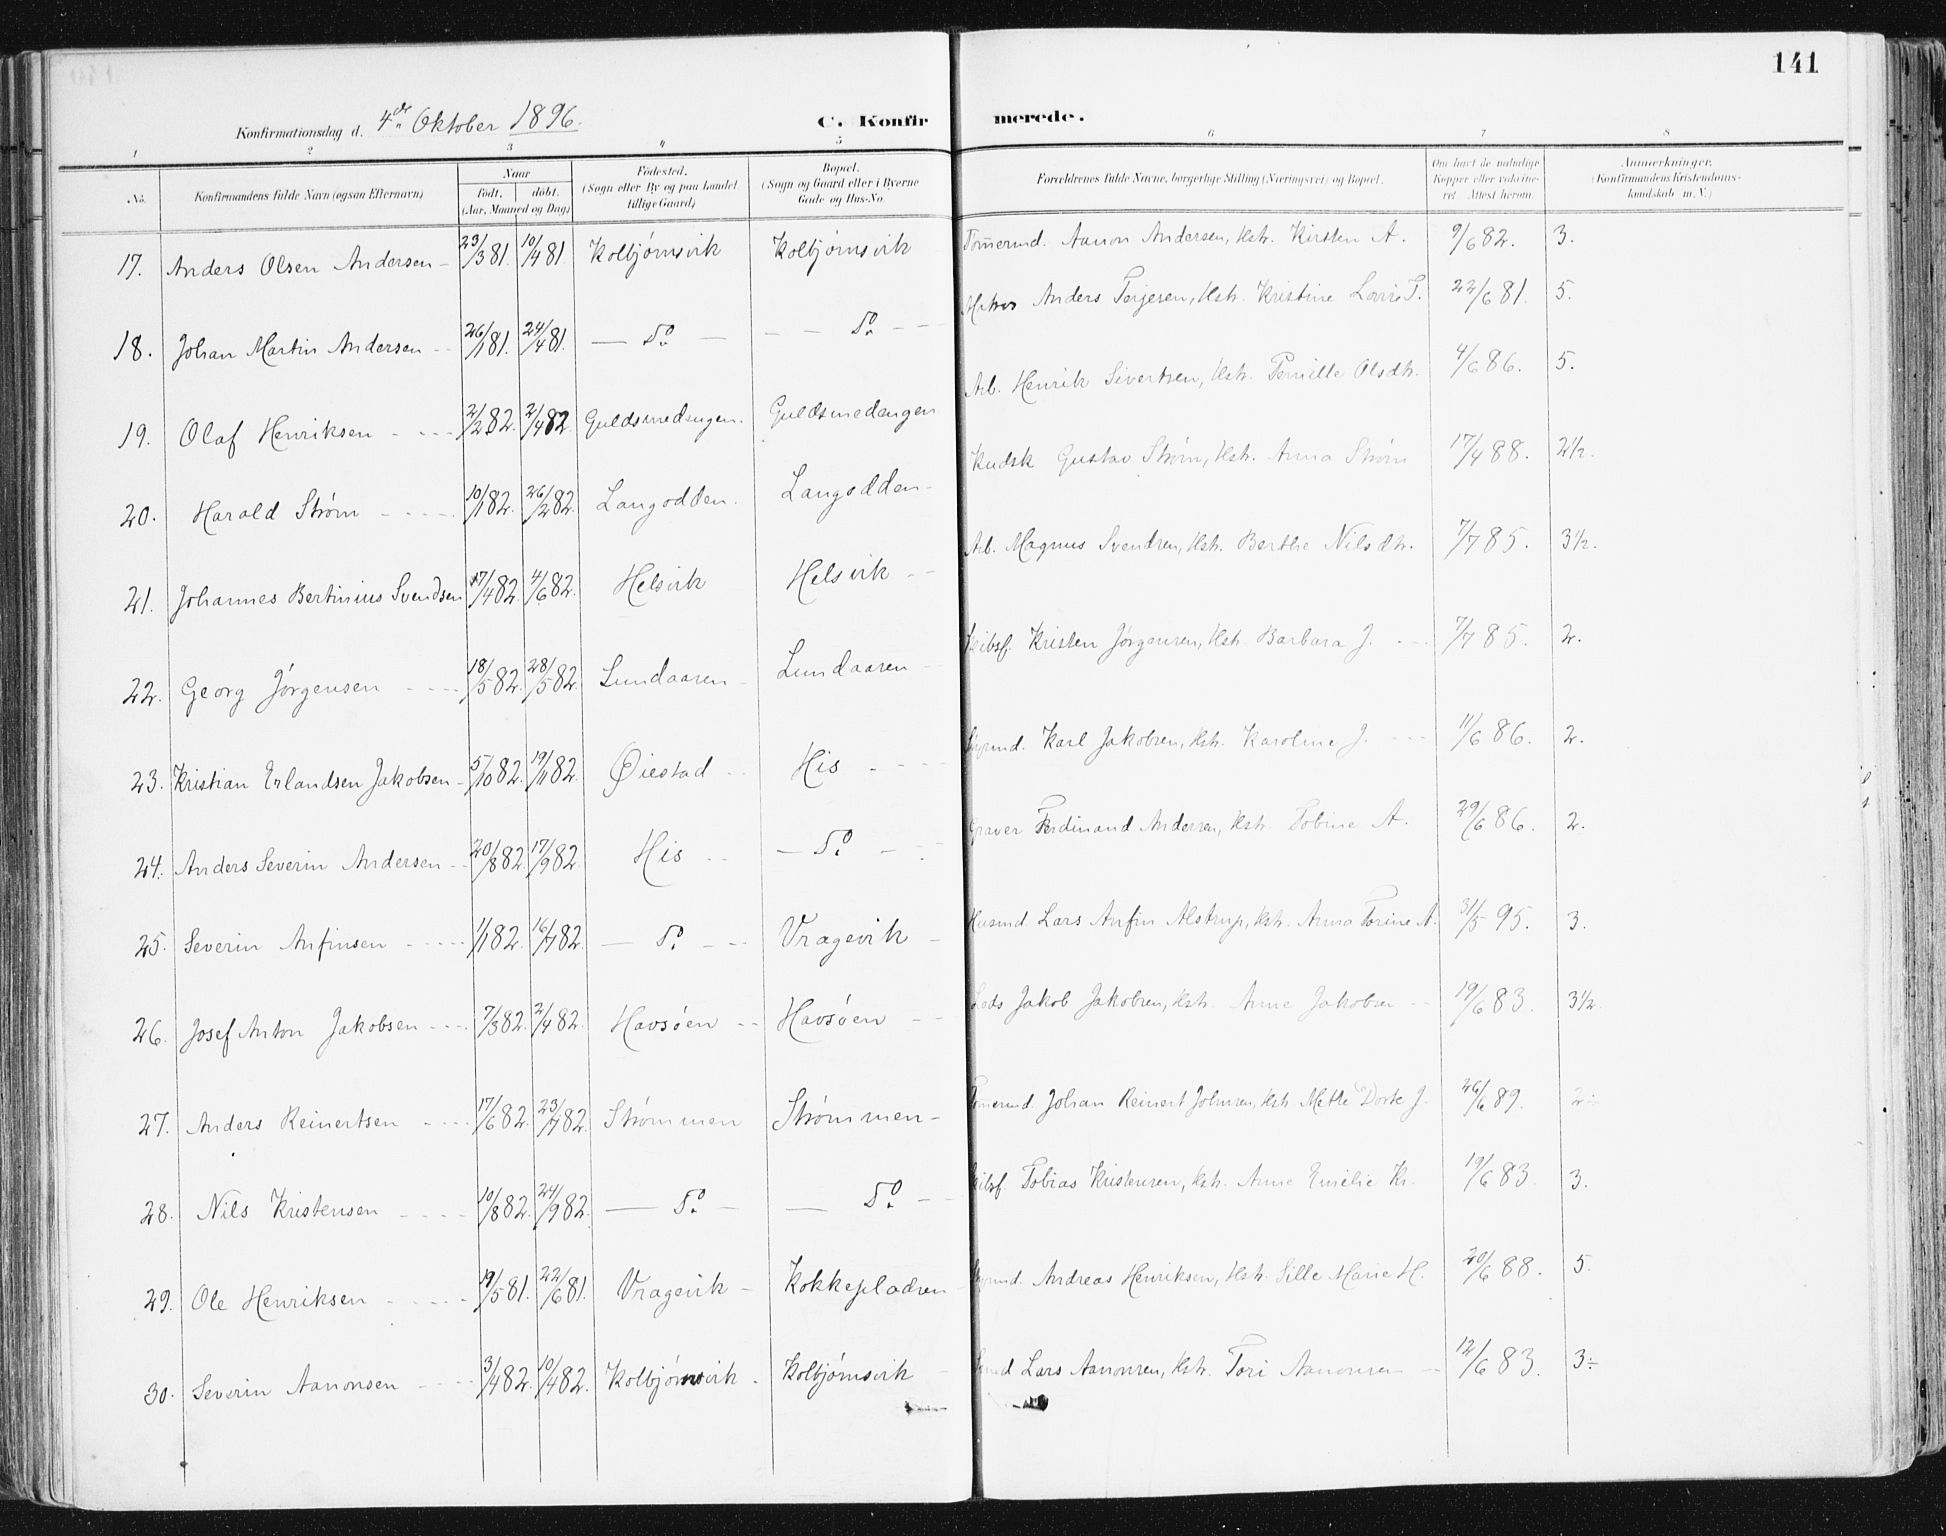 141
Konfirmationsdag d. 4de Oktober 1896. C. Konfir merede.
1 2 3 4 5 6 7 8
No. Konfirmandens fulde Navn (ogsaa Efternavn) Naar født. døbt. (Aar, Maaned og Dag) Fødested. (Sogn eller By og paa Landet tillige Gaard) Bopæl. (Sogn og Gaard eller i Byerne Gade og Hus-No. Forældrenes fulde Navne, borgerlige Stilling (Næringsvei) og Bopæl. Om havt de naturlige Kopper eller vaccineret. Attest herom. Anmærkninger. (Konfirmandens Kristendomskundskab m. V.)
17. Anders Olsen Andersen - 23/3 81. 10/4 81. Kolbjørnsvik Kolbjørnsvik Tømermd. Aanon Andersen, Hstr. Kirsten A. 9/6 82. 3.
18. Johan Martin Andersen - 26/1 81. 24/4 81. — Do — — Do — Matros Anders Terjesen, Hstr. Kristine Lovise T. 22/6 81. 5.
19. Olaf Henriksen - 2/2 82. 2/4 82. Guldsmedengen. Guldsmedengen Arb. Henrik Sivertsen, Hstr. Pernille Olsdtr. 4/6 86. 5.
20. Harald Strøm - 10/1 82. 26/2 82. Langodden. Langodden - Kudsk Gustav Strøm, Hstr. Anna Strøm 17/4 88. 2½.
21. Johannes Bertinius Svendsen 17/4 82. 4/6 82. Helsvik Helsvik - Arb. Magnus Svendsen, Hstr. Berthe Nilsdtr. 7/7 85. 3½.
22. Georg Jørgensen - 18/5 82. 28/5 82. Lundaaren - Lundaaren - Skibsf. Kristen Jørgensen, Hstr. Barbara J. - 7/7 85. 2.
23. Kristian Erlandsen Jakobsen - 5/10 82. 19/11 82. Øiestad - His - Styrmd. Karl Jakobsen, Hstr. Karoline J. - 11/6 86. 2.
24. Anders Severin Andersen - 20/8 82. 17/9 82. His - — Do — Graver Ferdinand Andersen, Hstr. Tobine A. 29/6 86. 2.
25. Severin Anfinsen - 1/1 82. 16/7 82. — Do — Vragevik - Husmd Lars Anfin Alstrup, Hstr. Anna Torine A. 31/5 95. 3.
26. Josef Anton Jakobsen - 7/3 82. 2/4 82. Havsøen - Havsøen - Lods Jakob Jakobsen, Hstr. Anne Jakobsen - 19/6 83. 3½.
27. Anders Reinertsen - 17/6 82. 23/7 82. Strømmen Strømmen - Tømermd. Johan Reinert Johnsen, Hstr. Mette Dorte J. 26/6 89. 2÷
28. Nils Kristensen - 10/8 82. 24/9 82. — Do — — Do — Skibsf. Tobias Kristensen, Hstr. Anne Emilie Kr. 19/6 83. 3.
29. Ole Henriksen - 19/5 81. 22/6 81. Vragevik - Kokkepladsen Styrmd. Andreas Henriksen, Hstr. Sille Marie H. 20/6 88. 5.
30. Severin Aanonsen - 3/4 82. 10/4 82. Kolbjørnsvik. Kolbjørnsvik - Lars Aanonsen, Hstr. Tori Aanonsen - 12/6 83. 3÷